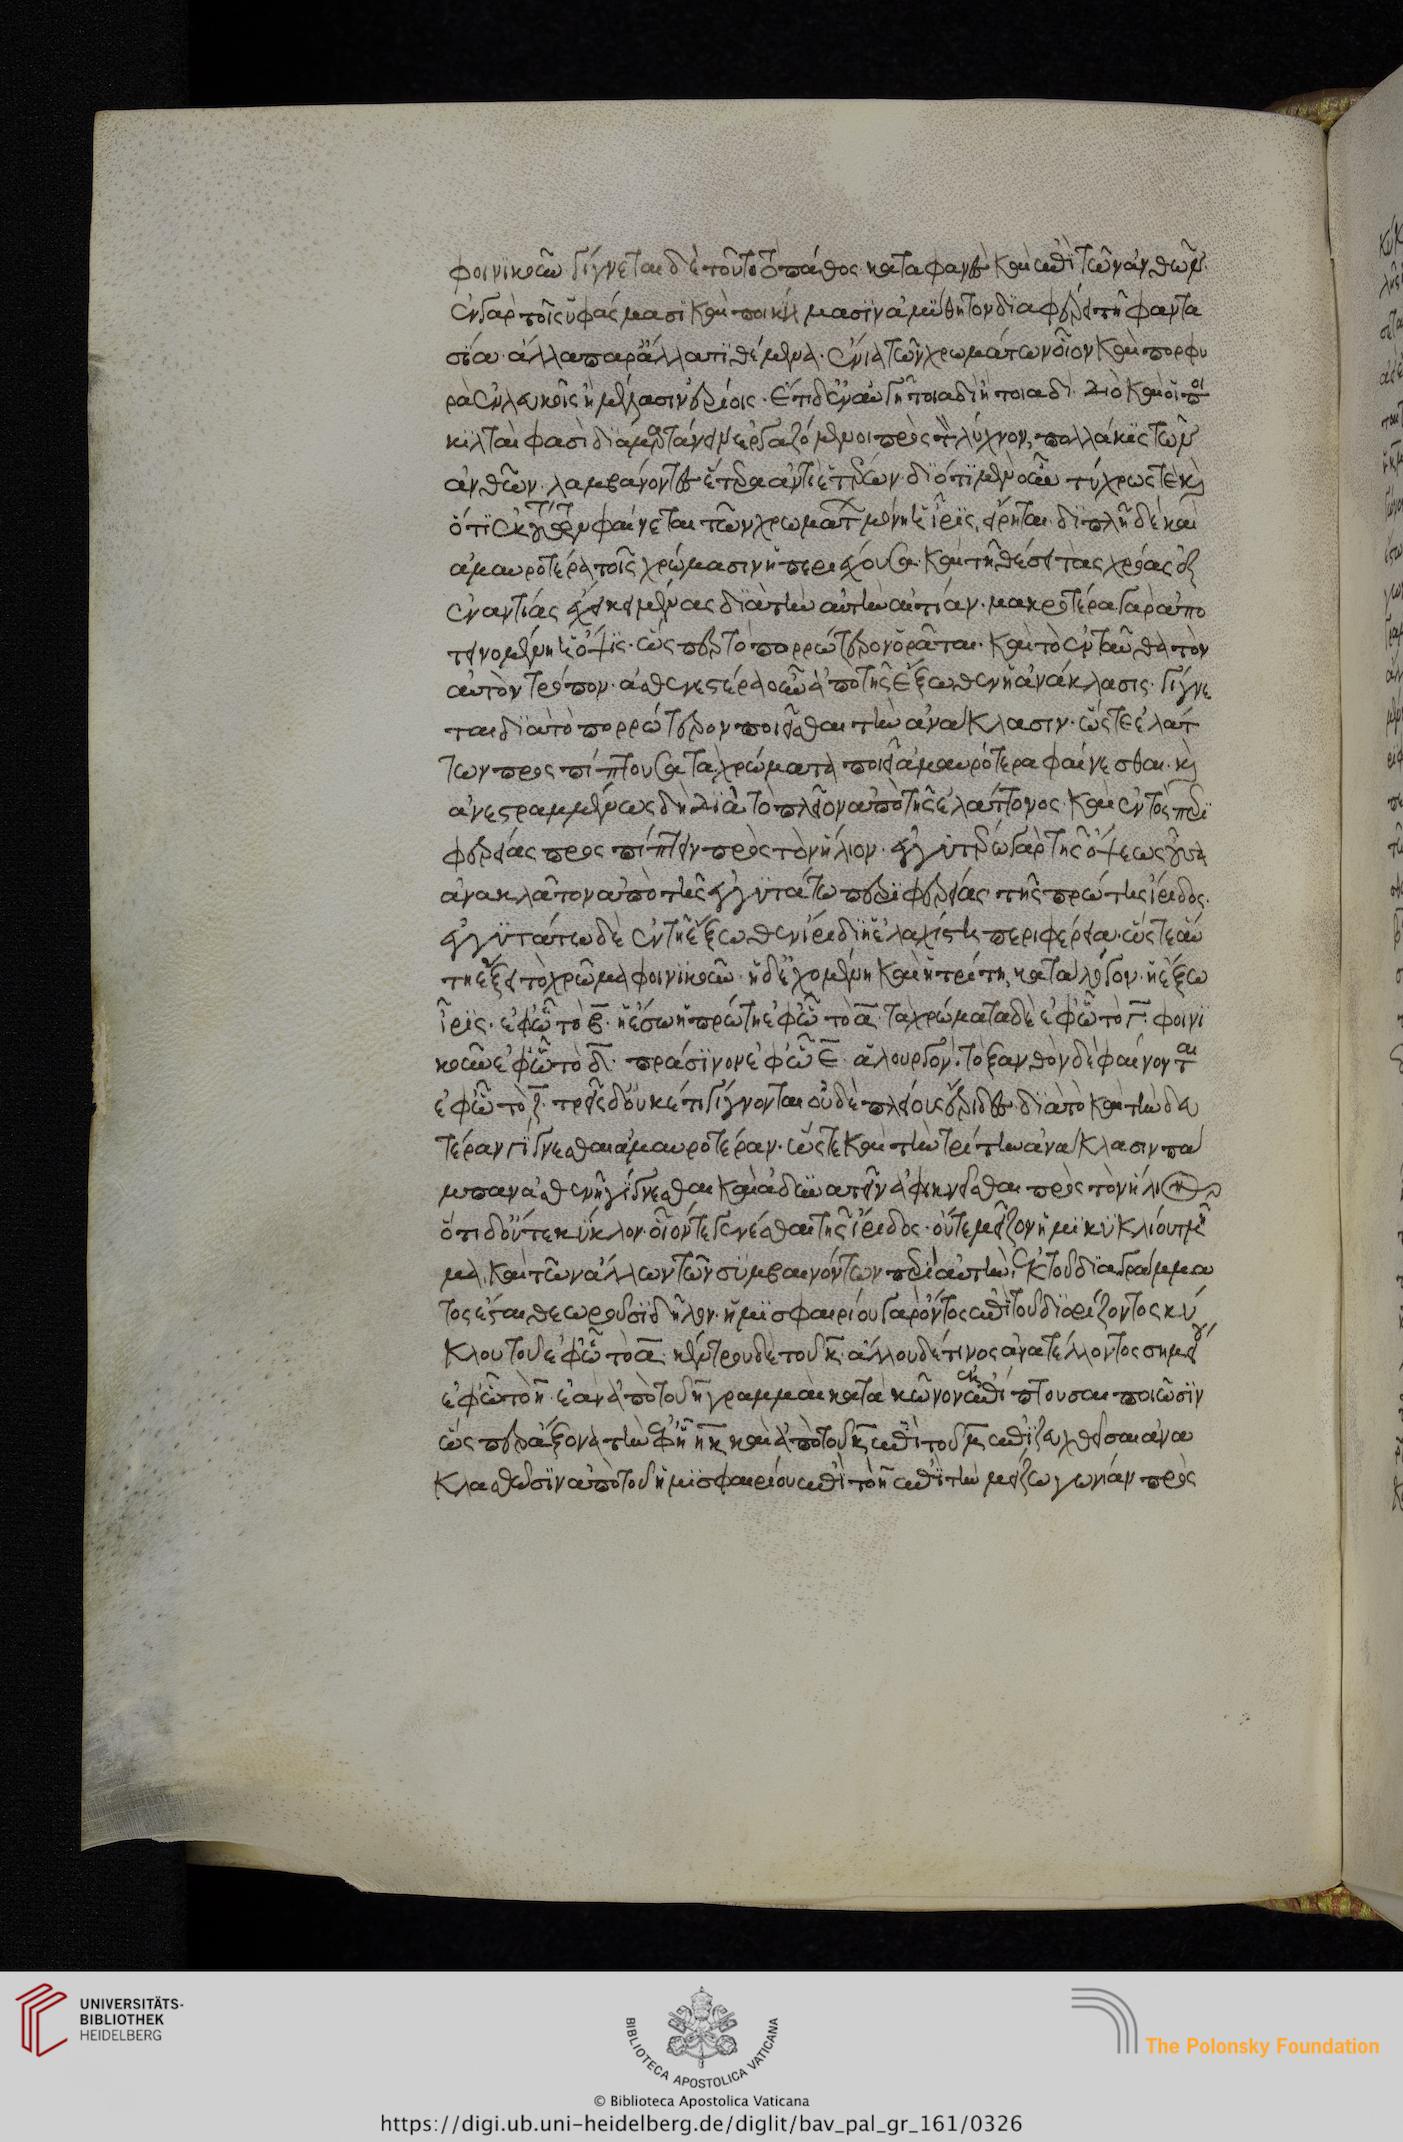 φοινικοῦν γίγνεται δὲ τοῦτο τὸ πάθος καταφανὲς καὶ ἐπὶ τῶν ἀνθῶν·
ἐν γὰρ τοῖς ὑφάσμασι καὶ ποικίλμασιν ἀμύθητον διαφέρει τῆ φαντα
σία· ἄλλα παρ' ἄλλα τιθέμενα· ἔνια τῶν χρωμάτων οἷον καὶ πορφυ
ρᾶ ἐν λευκοῖς ἢ μέλασιν ἐρίοις· ἔτι δ' ἐν αὐγῆ τοιαδὶ ἢ τοιαδί· διὸ καὶ οἱ ποι
κιλταὶ φασὶ διαμαρτάνειν ἐργαζόμενοι πρὸς τὸν λύχνον, πολλάκις τῶν
ἀνθῶν· λαμβάνοντες ἕτερα ἀντὶ ἑτέρων· διότι μὲν οὖν τρίχρως τε καὶ
ὅτι ἐκ τούτων φαίνεται τῶν χρωμάτων μόνη ἡ ἶρις, εἴρηται· διπλῆ δὲ καὶ
ἀμαυροτέρα τοῖς χρώμασιν ἡ περιέχουσα· καὶ τῆ θέσει τὰς χρόας ἐξ
ἐναντίας ἔχει κειμένας διὰ τὴν αὐτὴν αἰτίαν· μακροτέρα γὰρ ἀπο
τεινομένη ἡ ὄψις· ὥσπερ τὸ πορρώτερον ὁρᾶται· καὶ τὸ ἐνταῦθα τὸν
αὐτὸν τρόπον· ἀσθενεστέρα οὖν ἀπὸ τῆς ἔξωθεν ἡ ἀνάκλασις· γίγνε
ται διὰ τὸ πορρώτερον ποιεῖσθαι τὴν ἀνάκλασιν· ὥστε ἐλάτ
των προσπίπτουσα τὰ χρώματα ποιεῖ ἀμαυρότερα φαίνεσθαι· καὶ
ἀνεστραμμένως δὴ διὰ τὸ πλείονα ἀπὸ τῆς ἐλάττονος καὶ ἐντὸς περι
φερείας προσπίπτειν πρὸς τὸν ἥλιον· ἐγγυτέρω γὰρ τῆς ὄψεως οὖσα
ἀνακλᾶτον ἀπὸ τῆς ἐγγυτάτω περιφερείας τῆς πρώτης ἴριδος·
ἐγγυτάτω δὲ ἐν τῆ ἔξωθεν ἴριδι ἡ ἐλαχίστη περιφέρεια· ὥστε αὕ
τη ἕξει τὸ χρῶμα φοινικοῦν· ἡ δ' ἐχομένη καὶ ἡ τρίτη κατὰ λόγον· ἡ ἔξω
ἶρις· ἐφ' ᾧ τὸ β̅· ἡ ἔσω ἡ πρώτη ἐφ' ᾧ τὸ α̅· τὰ χρώματα δὲ ἐφ' ᾧ τὸ γ̅· φοινι
κοῦν ἐφ' ᾧ τὸ δ̅· πράσινον ἐφ' ᾧ ε̅· ἁλουργόν· τὸ ξανθὸν δὲ φαίνονται
ἐφ' ᾧ τὸ ζ̅· τρεῖς δ' οὐκέτι γίγνονται οὐδὲ πλείους ἴριδες· διὰ τὸ καὶ τὴν δευ
τέραν γίγνεσθαι ἀμαυροτέραν· ὥστε καὶ τὴν τρίτην ἀνάκλασιν πά
μπαν ἀσθενῆ γίγνεσθαι καὶ ἀδυνατεῖν ἀφικνεῖσθαι πρὸς τὸν ἥλιον
ὅτι δ' οὔτε κύκλον· οἷόν τε γενέσθαι τῆς ἴριδος· οὔτε μεῖζον ἡμικυκλίου τμῆ
μα, καὶ τῶν ἄλλων τῶν συμβαινόντων περὶ αὐτήν, ἐκ τοῦ διαγράμμα
τος ἔσται θεωροῦσι δῆλον· ἡμισφαιρίου γὰρ ὄντος ἐπὶ τοῦ ὁρίζοντος κύ
κλου τοῦ ἐφ' ᾧ τὸ α̅· κέντρου δὲ τοῦ κ̅· ἄλλου δέ τινος ἀνατέλλοντος σημείου
ἐφ' ᾧ τὸ η̅· ἐὰν ἀπὸ τοῦ κ̅ γραμμαὶ κατὰ κῶνον ἐκπίπτουσαι ποιῶσιν
ὥσπερ ἄξονα τὴν ἐφ' ᾗ η̅κ̅ καὶ ἀπὸ τοῦ κ̅ ἐπὶ τοῦ μ̅ ἐπιζευχθεῖσαι ἀνα
κλασθῶσιν ἀπὸ τοῦ ἡμισφαιρίου ἐπὶ τὸ η̅ ἐπὶ τὴν μείζω γωνίαν πρὸς
UNIVERSITÄTS-
BIBLIOTHEK
HEIDELBERG
BIBLIOTECA APOSTOLICA VATICANA
The Polonsky Foundation
© Biblioteca Apostolica Vaticana
https://digi.ub.uni-heidelberg.de/diglit/bav_pal_gr_161/0326